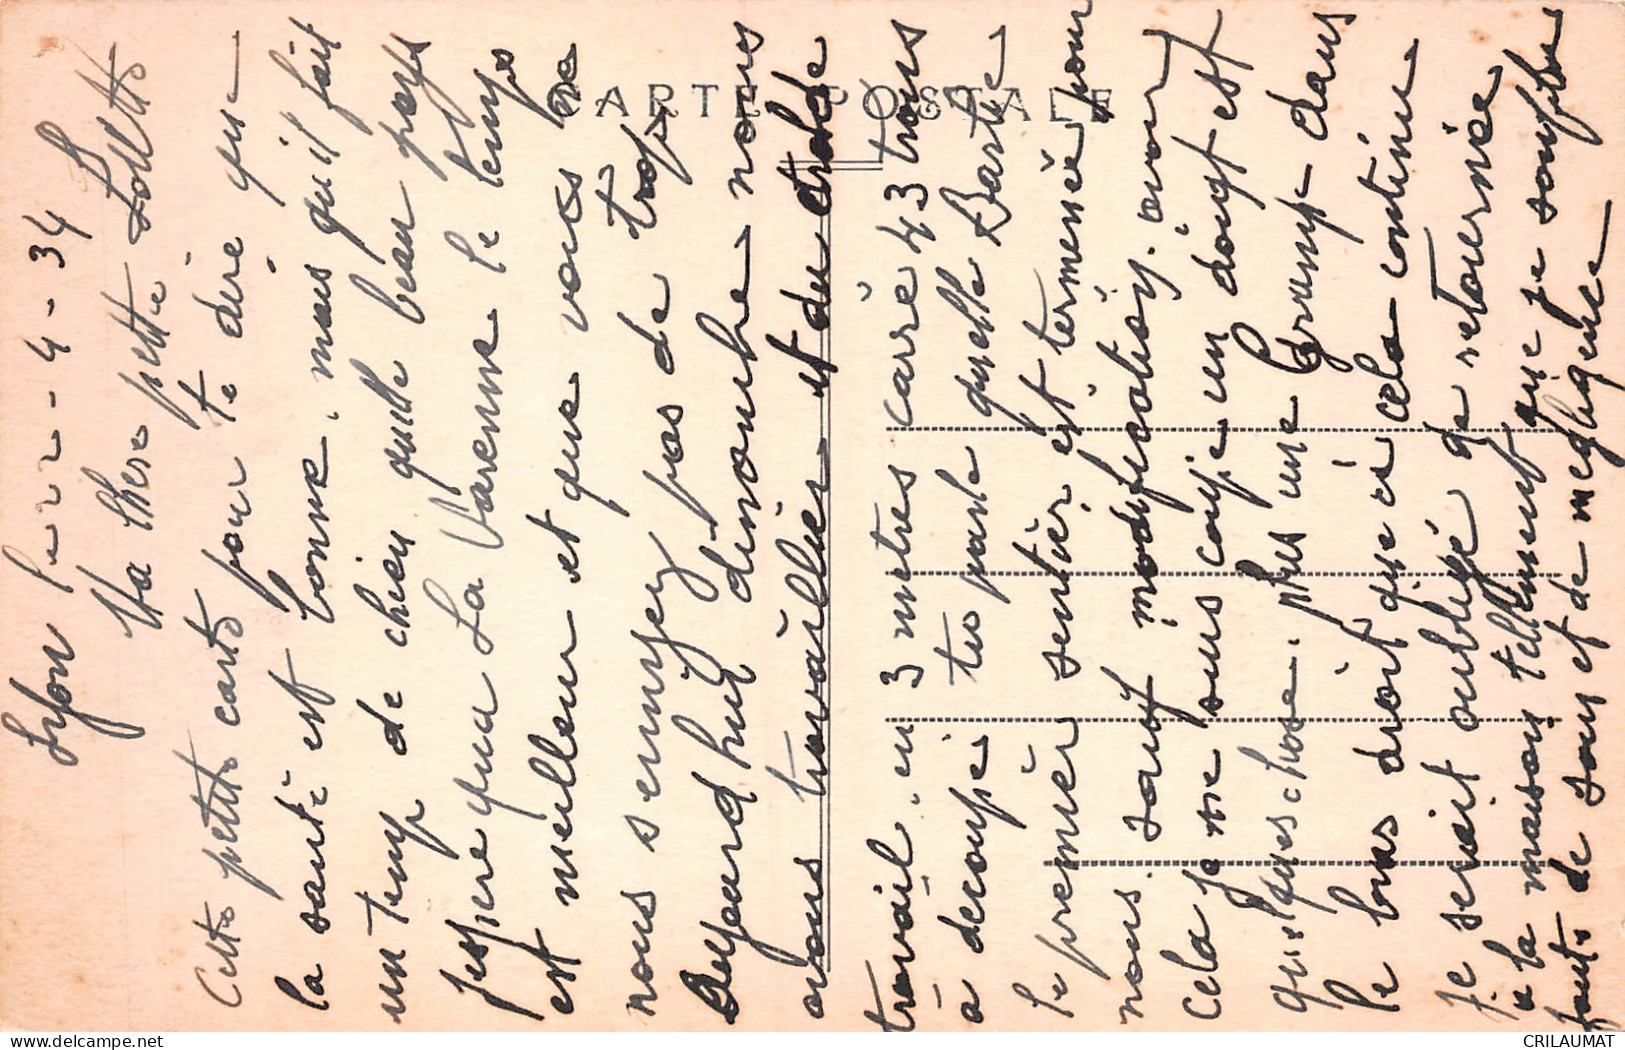 Lyon le 2 - 4 - 34
Ma chère petite Lolette
Cette petite carte pour te dire que
la santé est bonne. mais qu'il fait
un temp de chien quelle beau pays
j'espere qua La Varenne le temps
est meilleur et que vous ne
nous ennuyez pas de trop.
Aujourd'hui dimanche nous
avons travaillier et du drole de
travail. en 3 metres carré 43 trous
à decoupé tu parle quelle Partie
le premier sentier est terminée pour
nous. sauf modification. avour
Cela je me suis coupé un doigt est
quelques chose. plus une Crampe dans
le bras droit que ci cela continue
Je serait oublige de retournée
a la maison tellement que je souffre
faute de sous et de
CARTE POSTALE
CRILAUMAT